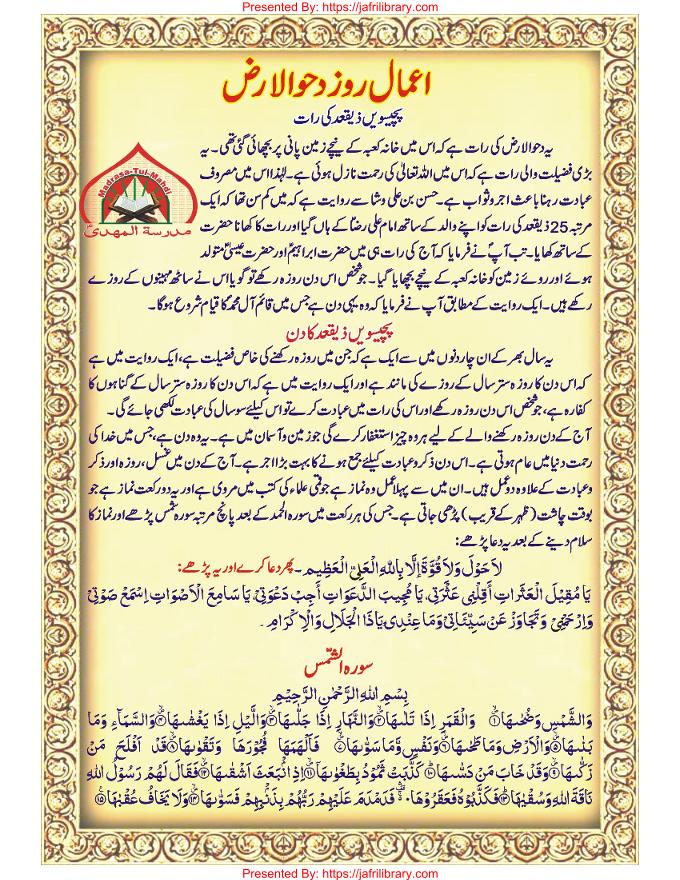 Presented By: https://jafrilibrary.com
اعمال روز دحوالارض
پچیسویں ذیقعد کی رات
یہ دحوالارض کی رات ہے کہ اس میں خانہ کعبہ کے نیچے زمین پانی پر بچھائی گئی تھی۔ یہ
بڑی فضیلت والی رات ہے کہ اس میں اللہ تعالیٰ کی رحمت نازل ہوئی ہے۔ لہٰذا اس میں مصروف
عبادت رہنا باعث اجر و ثواب ہے۔ حسن بن علی وشا سے روایت ہے کہ میں کم سن تھا کہ ایک
مرتبہ 25 ذیقعد کی رات کو اپنے والد کے ساتھ امام علی رضاؑ کے ہاں گیا اور رات کا کھانا حضرت
کے ساتھ کھایا۔ تب آپؑ نے فرمایا کہ آج کی رات ہی میں حضرت ابراہیمؑ اور حضرت عیسیٰؑ متولد
ہوئے اور روئے زمین کو خانہ کعبہ کے نیچے بچھایا گیا۔ جو شخص اس دن روزہ رکھے تو گویا اس نے ساٹھ مہینوں کے روزے
رکھے ہیں۔ ایک روایت کے مطابق آپ نے فرمایا کہ وہ یہی دن ہے جس میں قائم آل محمدؐ کا قیام شروع ہوگا۔
Madrasa-Tul-Mahdi
مدرسة المهدیؑ
پچیسویں ذیقعد کا دن
یہ سال بھر کے ان چار دنوں میں سے ایک ہے کہ جن میں روزہ رکھنے کی خاص فضیلت ہے، ایک روایت میں ہے
کہ اس دن کا روزہ ستر سال کے روزے کی مانند ہے اور ایک روایت میں ہے کہ اس دن کا روزہ ستر سال کے گناہوں کا
کفارہ ہے، جو شخص اس دن روزہ رکھے اور اس کی رات میں عبادت کرے تو اس کیلئے سو سال کی عبادت لکھی جائے گی۔
آج کے دن روزہ رکھنے والے کے لیے ہر وہ چیز استغفار کرے گی جو زمین و آسمان میں ہے۔ یہ وہ دن ہے، جس میں خدا کی
رحمت دنیا میں عام ہوتی ہے۔ اس دن ذکر و عبادت کیلئے جمع ہونے کا بہت بڑا اجر ہے۔ آج کے دن میں غسل، روزہ اور ذکر
و عبادت کے علاوہ دو عمل ہیں۔ ان میں سے پہلا عمل وہ نماز ہے جو قمی علماء کی کتب میں مروی ہے اور یہ دو رکعت نماز ہے جو
بوقت چاشت (ظہر کے قریب) پڑھی جاتی ہے۔ جس کی ہر رکعت میں سورہ الحمد کے بعد پانچ مرتبہ سورہ شمس پڑھے اور نماز کا
سلام دینے کے بعد یہ دعا پڑھے:
لَاحَوْلَ وَلَا قُوَّةَ اِلَّا بِاللهِ الْعَلِيِّ الْعَظِيمِ۔ پھر دعا کرے اور یہ پڑھے:
يَا مُقِيْلَ الْعَثَرَاتِ اَقِلْنِي عَثْرَتِي، يَا مُجِيبَ الدَّعَوَاتِ اَجِبْ دَعْوَتِي، يَا سَامِعَ الْاَصْوَاتِ اِسْمَعْ صَوْتِي
وَارْحَمْنِي وَتَجَاوَزْ عَنْ سَيِّئَاتِي وَمَا عِنْدِي يَا ذَا الْجَلَالِ وَالْاِكْرَامِ۔
سورہ الشّمس
بِسْمِ اللهِ الرَّحْمٰنِ الرَّحِيْمِ
وَالشَّمْسِ وَضُحٰىهَا ۝۱ وَالْقَمَرِ اِذَا تَلٰىهَا ۝۲ وَالنَّهَارِ اِذَا جَلّٰىهَا ۝۳ وَالَّيْلِ اِذَا يَغْشٰىهَا ۝۴ وَالسَّمَآءِ وَمَا
بَنٰىهَا ۝۵ وَالْاَرْضِ وَمَا طَحٰىهَا ۝۶ وَنَفْسٍ وَّمَا سَوّٰىهَا ۝۷ فَاَلْهَمَهَا فُجُوْرَهَا وَتَقْوٰىهَا ۝۸ قَدْ اَفْلَحَ مَنْ
زَكّٰىهَا ۝۹ وَقَدْ خَابَ مَنْ دَسّٰىهَا ۝۱۰ كَذَّبَتْ ثَمُوْدُ بِطَغْوٰىهَا ۝۱۱ اِذِ انْۢبَعَثَ اَشْقٰىهَا ۝۱۲ فَقَالَ لَهُمْ رَسُوْلُ اللهِ
نَاقَةَ اللهِ وَسُقْيٰهَا ۝۱۳ فَكَذَّبُوْهُ فَعَقَرُوْهَا ۙ فَدَمْدَمَ عَلَيْهِمْ رَبُّهُمْ بِذَنْۢبِهِمْ فَسَوّٰىهَا ۝۱۴ وَلَا يَخَافُ عُقْبٰهَا ۝۱۵
Presented By: https://jafrilibrary.com